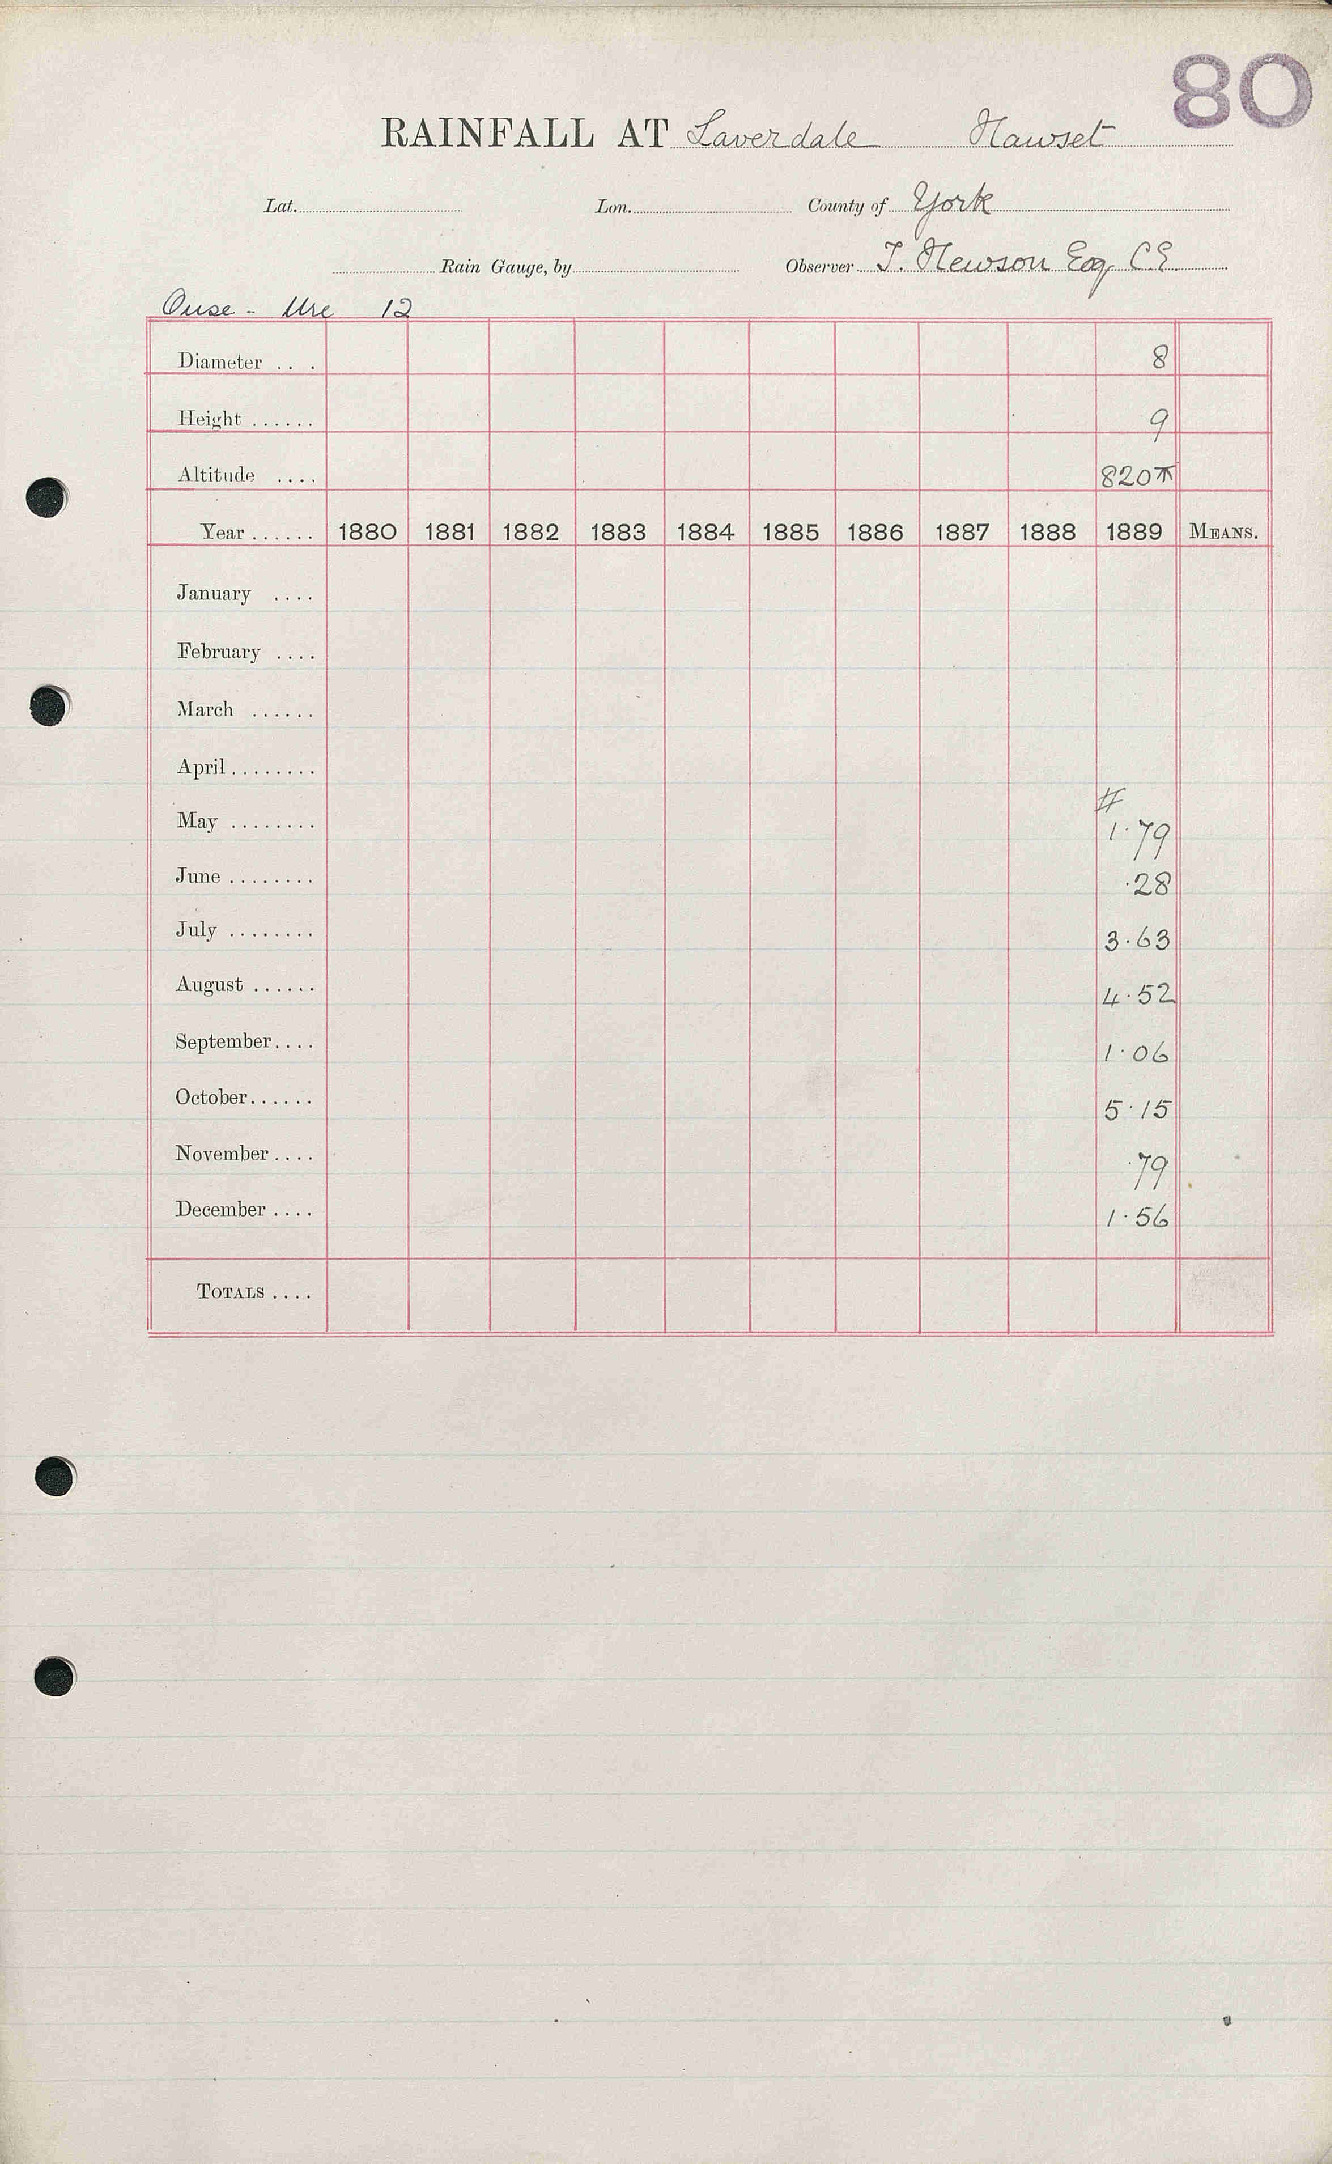 80
RAINFALL AT Laverdale Hawset
Lat. Lon. County of York
Rain Gauge, by Observer T. Hewson Esq CE
Ouse - Ure 12
Diameter . . . 8
Height ...... 9
Altitude .... 820
Year ...... 1880 1881 1882 1883 1884 1885 1886 1887 1888 1889 MEANS.
January ....
February ....
March ......
April ........
#
May ........ 1.79
June ........ .28
July ........ 3.63
August ...... 4.52
September.... 1.06
October...... 5.15
November.... .79
December.... 1.56
TOTALS ....